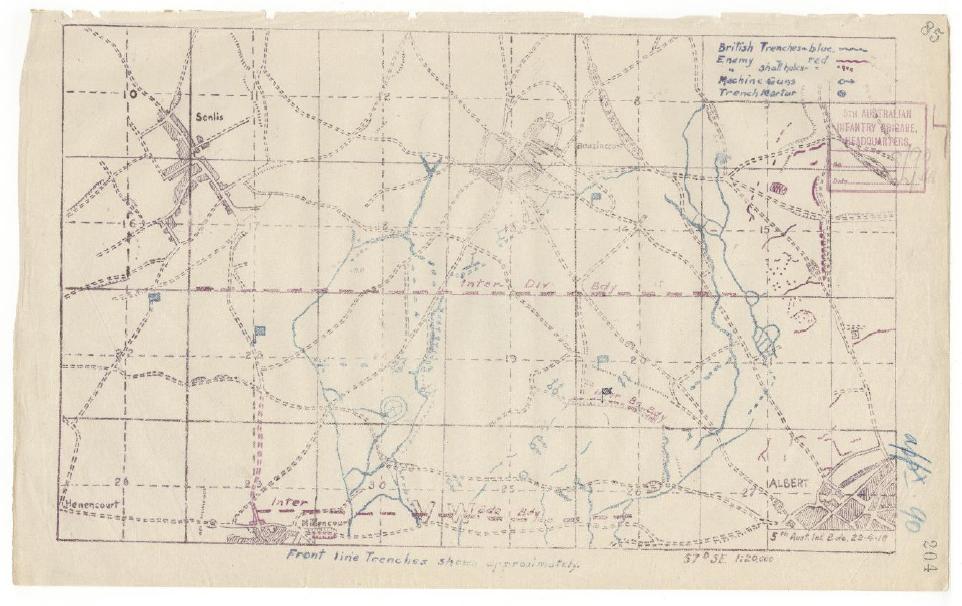 85
British Trenches - blue.
Enemy " red
" shell holes - "
Machine Guns
Trench Mortar
5TH AUSTRALIAN
INFANTRY BRIGADE,
HEADQUARTERS.
No.
Date
10
8
Senlis
Bouzincourt
16
15
Inter Div Bdy
19
20
Inter Bn Bdy
26
30
25
26
27
Henencourt
Millencourt
Inter Brigade Bdy
ALBERT
5th Aust. Inf. Bde. 22-4-18
Front line Trenches shown approximately.
57D SE 1:20,000
appx. 90
204